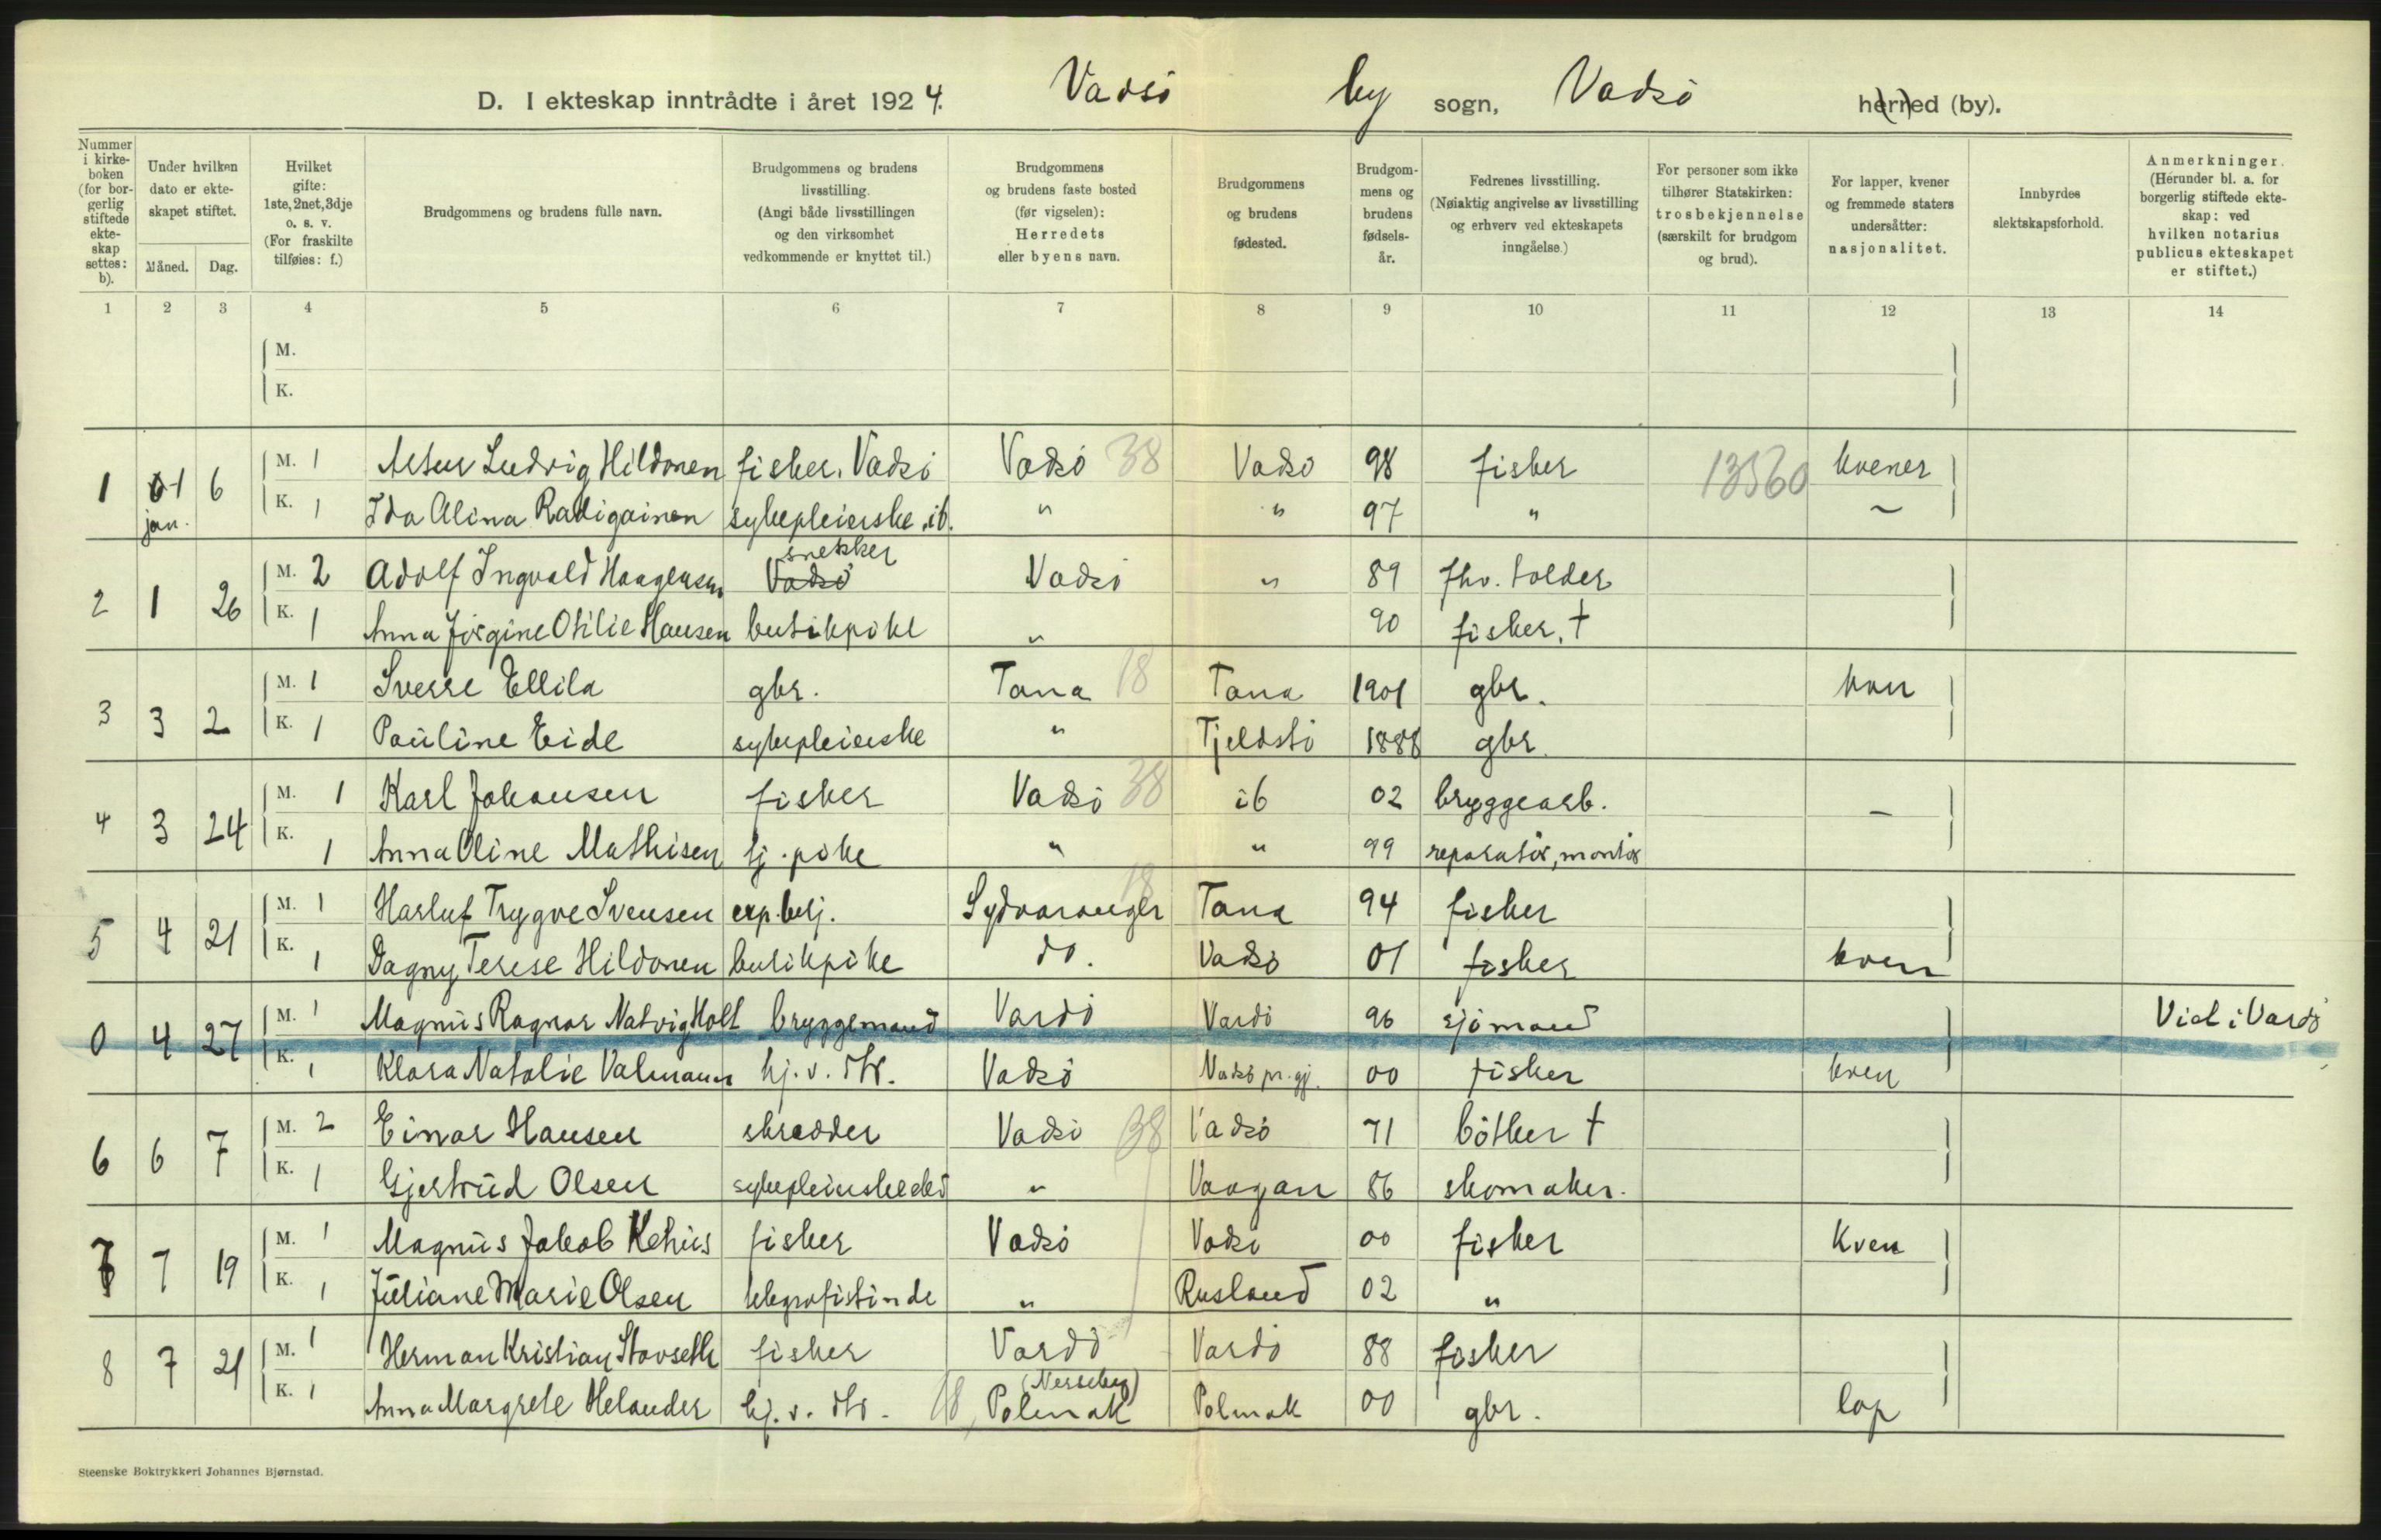 D. I ekteskap inntrådte i året 1924. Vadsö by sogn, Vadsö herred (by).
Nummer i kirkeboken (for borgerlig stiftede ekteskap settes: b).
Under hvilken dato er ekteskapet stiftet.
Måned. Dag.
Hvilket gifte: 1ste, 2net, 3dje o. s. v. (For fraskilte tilføies: f.)
Brudgommens og brudens fulle navn.
Brudgommens og brudens livsstilling. (Angi både livsstillingen og den virksomhet vedkommende er knyttet til.)
Brudgommens og brudens faste bosted (før vigselen): Herredets eller byens navn.
Brudgommens og brudens fødested.
Brudgommens og brudens fødselsår.
Fedrenes livsstilling. (Nøiaktig angivelse av livsstilling og erhverv ved ekteskapets inngåelse.)
For personer som ikke tilhører Statskirken: trosbekjennelse (særskilt for brudgom og brud).
For lapper, kvener og fremmede staters undersåtter: nasjonalitet.
Innbyrdes slektskapsforhold.
Anmerkninger. (Herunder bl. a. for borgerlig stiftede ekteskap: ved hvilken notarius publicus ekteskapet er stiftet.)
1 2 3 4 5 6 7 8 9 10 11 12 13 14
M.
K.
1 1 6 M. 1 Artur Ludvig Hildonen fisker, Vadsö Vadsö 38 Vadsö 98 fisker 13560 kvener
jan. K. 1 Ida Alina sykepleierske, ib. " " 97 " ~
snekker
2 1 26 M. 2 Adolf Ingvald Haagensen Vadsö Vadsö " 89 fhv. tolder
K. 1 Anna Jörgine Otilie Hansen butikpike " 90 fisker, †
3 3 2 M. 1 Sverre Ellila gbr. Tana 18 Tana 1901 gbr. kven
K. 1 Pauline Eide sykepleierske " Tjeldstö 1888 gbr.
4 3 24 M. 1 Karl Johansen fisker Vadsö 38 ib 02 bryggearb. –
K. 1 Anna Oline Mathisen tj. pike " " 99 reparatör, montör
5 4 21 M. 1 Harluf Trygve Svensen exp. betj. Sydvaranger 18 Tana 94 fisker
K. 1 Dagny Terese Hildonen butikpike do. Vadsö 01 fisker kven
0 4 27 M. 1 Magnus Ragnar Natvig Holt bryggemand Vardö Vardö 96 sjömand Viet i Vardö
K. 1 Klara Natalie Valmann hj. v. str. Vadsö Vadsö pr.gj. 00 fisker kven
6 6 7 M. 2 Einar Hansen skredder Vadsö 38 Vadsö 71 bötker †
K. 1 Gjertrud Olsen " Vaagan 86 skomaker.
7 7 19 M. 1 Magnus Jakob Kehus fisker Vadsö Vadsö 00 fisker Kven
K. 1 Juliane Marie Olsen telegrafistinde " Rusland 02 "
8 7 21 M. 1 Herman Kristian Stavseth fisker Vardö Vardö 88 fisker
K. 1 Anna Margrete Helander hj. v. str. 18 Polmak Polmak 00 gbr. lap
Steenske Boktrykkeri Johannes Bjørnstad.